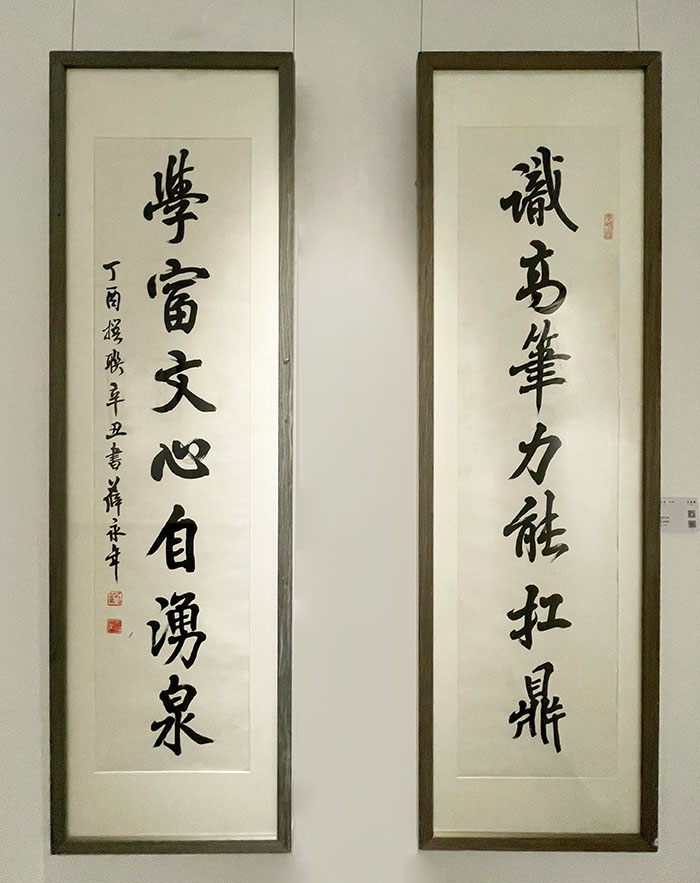 識高筆力能扛鼎
學富文心自湧泉
丁酉撰聯辛丑書薛永年